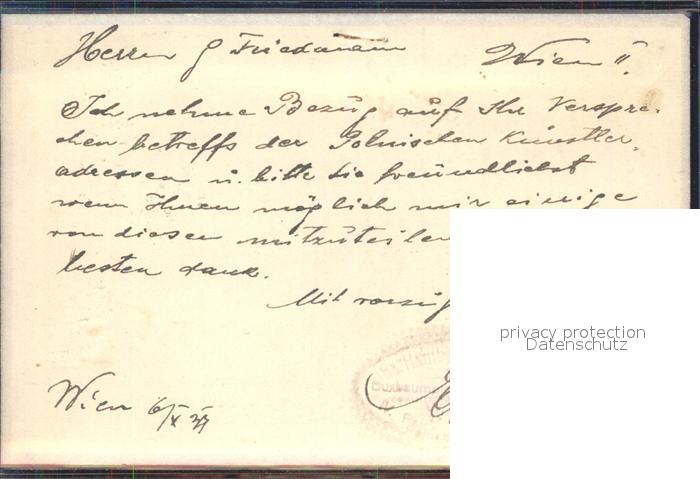 Herrn J Friedmann Wien II.
Ich nehme Bezug auf Ihr Verspre-
chen betreffs der Polnischen Künstler-
adressen u. bitte Sie freundlichst
wenn Ihnen möglich mir einige
von diesen mitzuteilen
besten dank.
Mit vorzüg
privacy protection
Datenschutz
Wien 6/X 27